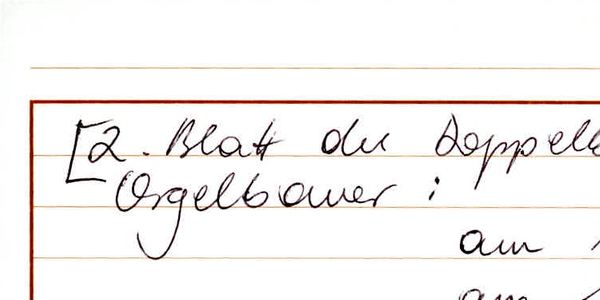 [2. Blatt der Doppelb
Orgelbauer :
am
am